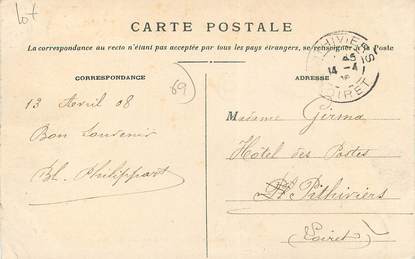 Lot
CARTE POSTALE
La correspondance au recto n'étant pas acceptée par tous les pays étrangers, se renseigner à la Poste
CORRESPONDANCE
ADRESSE
PITHIVIERS
14 -4
LOIRET
69
13 Avril 08
Bon Souvenir
Bl. Philippart
Madame Girma
Hôtel des Postes
Pithiviers
(Loiret)